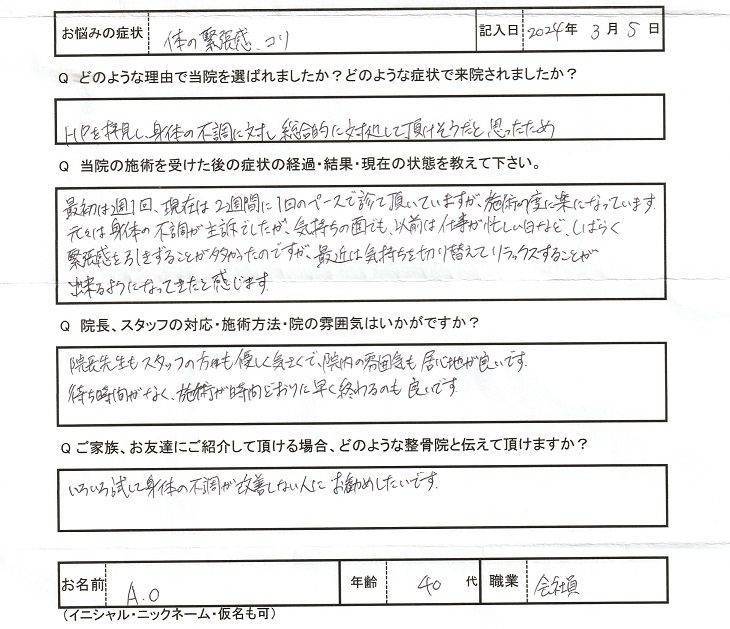 お悩みの症状 体の緊張感、コリ 記入日 2024年 3月 5日
Q どのような理由で当院を選ばれましたか?どのような症状で来院されましたか?
HPを拝見し、身体の不調に対し、総合的に対処して頂けそうだと思ったため
Q 当院の施術を受けた後の症状の経過・結果・現在の状態を教えて下さい。
最初は週1回、現在は2週間に1回のペースで診て頂いていますが、施術の度に楽になっています。
元々は身体の不調が主訴でしたが、気持ちの面でも、以前は仕事が忙しい日など、しばらく
緊張感をひきずることが多かったのですが、最近は気持ちを切り替えてリラックスすることが
出来るようになってきたと感じます。
Q 院長、スタッフの対応・施術方法・院の雰囲気はいかがですか?
院長先生もスタッフの方も優しく気さくで、院内の雰囲気も居心地が良いです。
待ち時間がなく、施術が時間どおりに早く終わるのも良いです。
Q ご家族、お友達にご紹介して頂ける場合、どのような整骨院と伝えて頂けますか?
いろいろ試して身体の不調が改善しない人にお勧めしたいです。
お名前 A.O 年齢 40 代 職業 会社員
(イニシャル・ニックネーム・仮名も可)